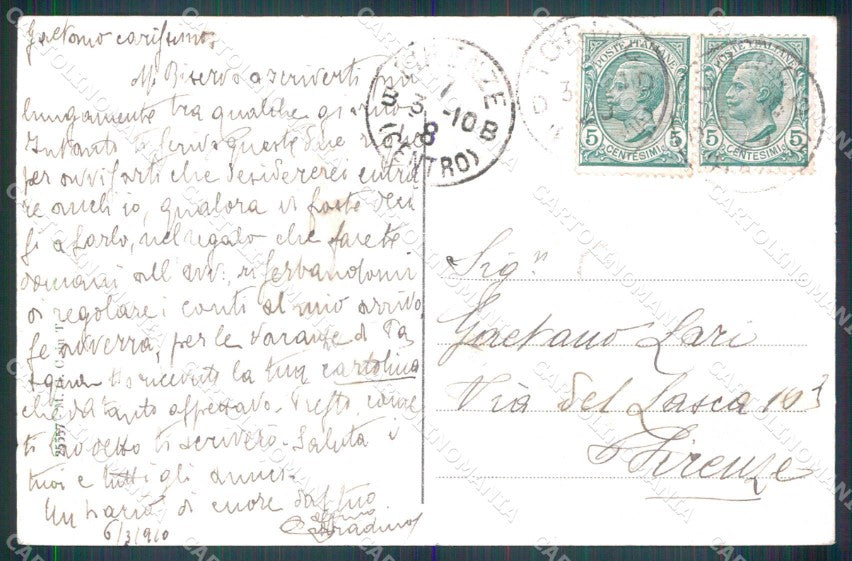 Gaetano carissimo,
Mi riservo a scriverti più
lungamente tra qualche giorno.
Intanto ti scrivo queste due righe
per avvisarti che desidererei entra
re anch'io, qualora vi foste deci
si a farlo, nel regalo che farete
domani all'avv: riservandomi
di regolare i conti al mio arrivo,
che avverrà, per le vacanze di Pa
squa. Ho ricevuto la tua cartolina
che da tanto aspettavo. Presto, come
ti ho detto ti scriverò. Saluta i
tuoi e tutti gli amici.
Un bacio di cuore dal tuo
6/3/910
25557
FIRENZE
(CENTRO)
8
3-10 B
TORINO
POSTE ITALIANE
5 5
CENTESIMI
POSTE ITALIANE
5 5
CENTESIMI
Sig.r
Gaetano Lari
Via del Lasca 10
Firenze
CARTOLINOMANIA